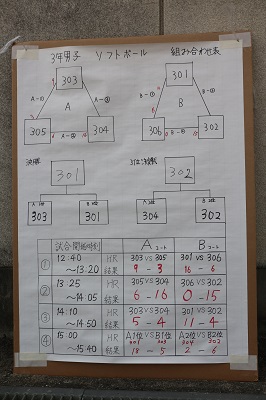 3年男子 ソフトボール 組み合わせ表
303
A-① A-③
A
305 A-② 304
301
B-① B-③
B
306 B-② 302
決勝戦
301
A 1位 B 1位
303 301
3位決勝戦
302
A 2位 B 2位
304 302
試合開始時刻 Aコート Bコート
① 12:40 HR 303 VS 305 301 VS 306
~13:20 結果 9 - 3 16 - 6
② 13:25 HR 305 VS 304 306 VS 302
~14:05 結果 6 - 16 0 - 15
③ 14:10 HR 303 VS 304 301 VS 302
~14:50 結果 5 - 4 11 - 4
④ 15:00 HR A1位 VS B1位 A2位 VS B2位
303 301 304 302
~15:40 結果 18 - 5 2 - 6